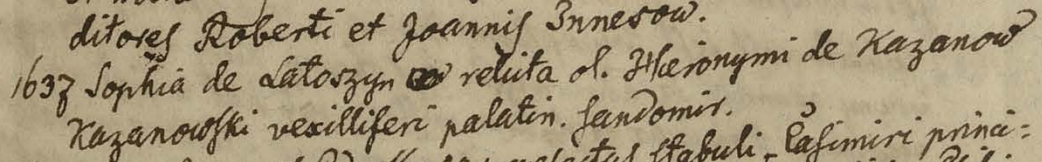 ditores Roberti et Joannis Innesow.
1637 Sophia de Latoszyn relicta ol. Hieronymi de Kazanow
Kazanowski vexilliferi palatin. Sandomir.
stabuli Casimiri princi=